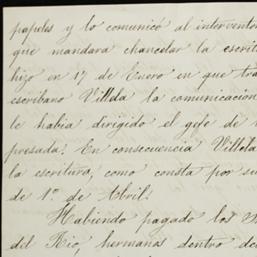 papeles y lo comunicó al interventor
que mandara chancelar la escrit
hizo en 17 de Enero en que tra
escribano Villela la comunicacion
le habia dirigido el gefe de
presada. En consecuencia Villela
la escritura, como consta por su
de 1º. de Abril.
Habiendo pagado los
del Rio, hermanos dentro de